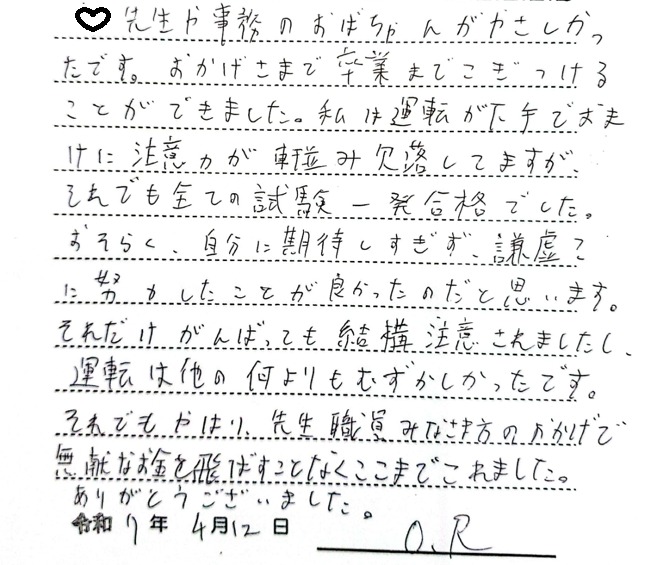 ♡ 先生や事務のおばちゃんがやさしかっ
たです。おかげさまで卒業までこぎつける
ことができました。私は運転が下手でおま
けに注意力が軒並み欠落してますが、
それでも全ての試験一発合格でした。
おそらく、自分に期待しすぎず、謙虚に
に努力したことが良かったのだと思います。
それだけがんばっても結構注意されましたし、
運転は他の何よりもむずかしかったです。
それでもやはり、先生職員みなさま方のおかげで
無駄なお金を飛ばすことなくここまでこれました。
ありがとうございました。
令和7年 4月12日 O.R